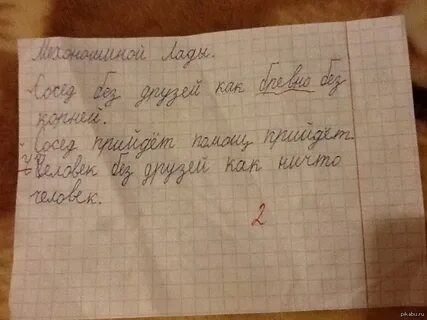 Механошиной Лады.
- Сосед без друзей как бревно без
корней.
- Сосед прийдёт помощ прийдёт.
- Человек без друзей как ничто
человек.
2
pikabu.ru